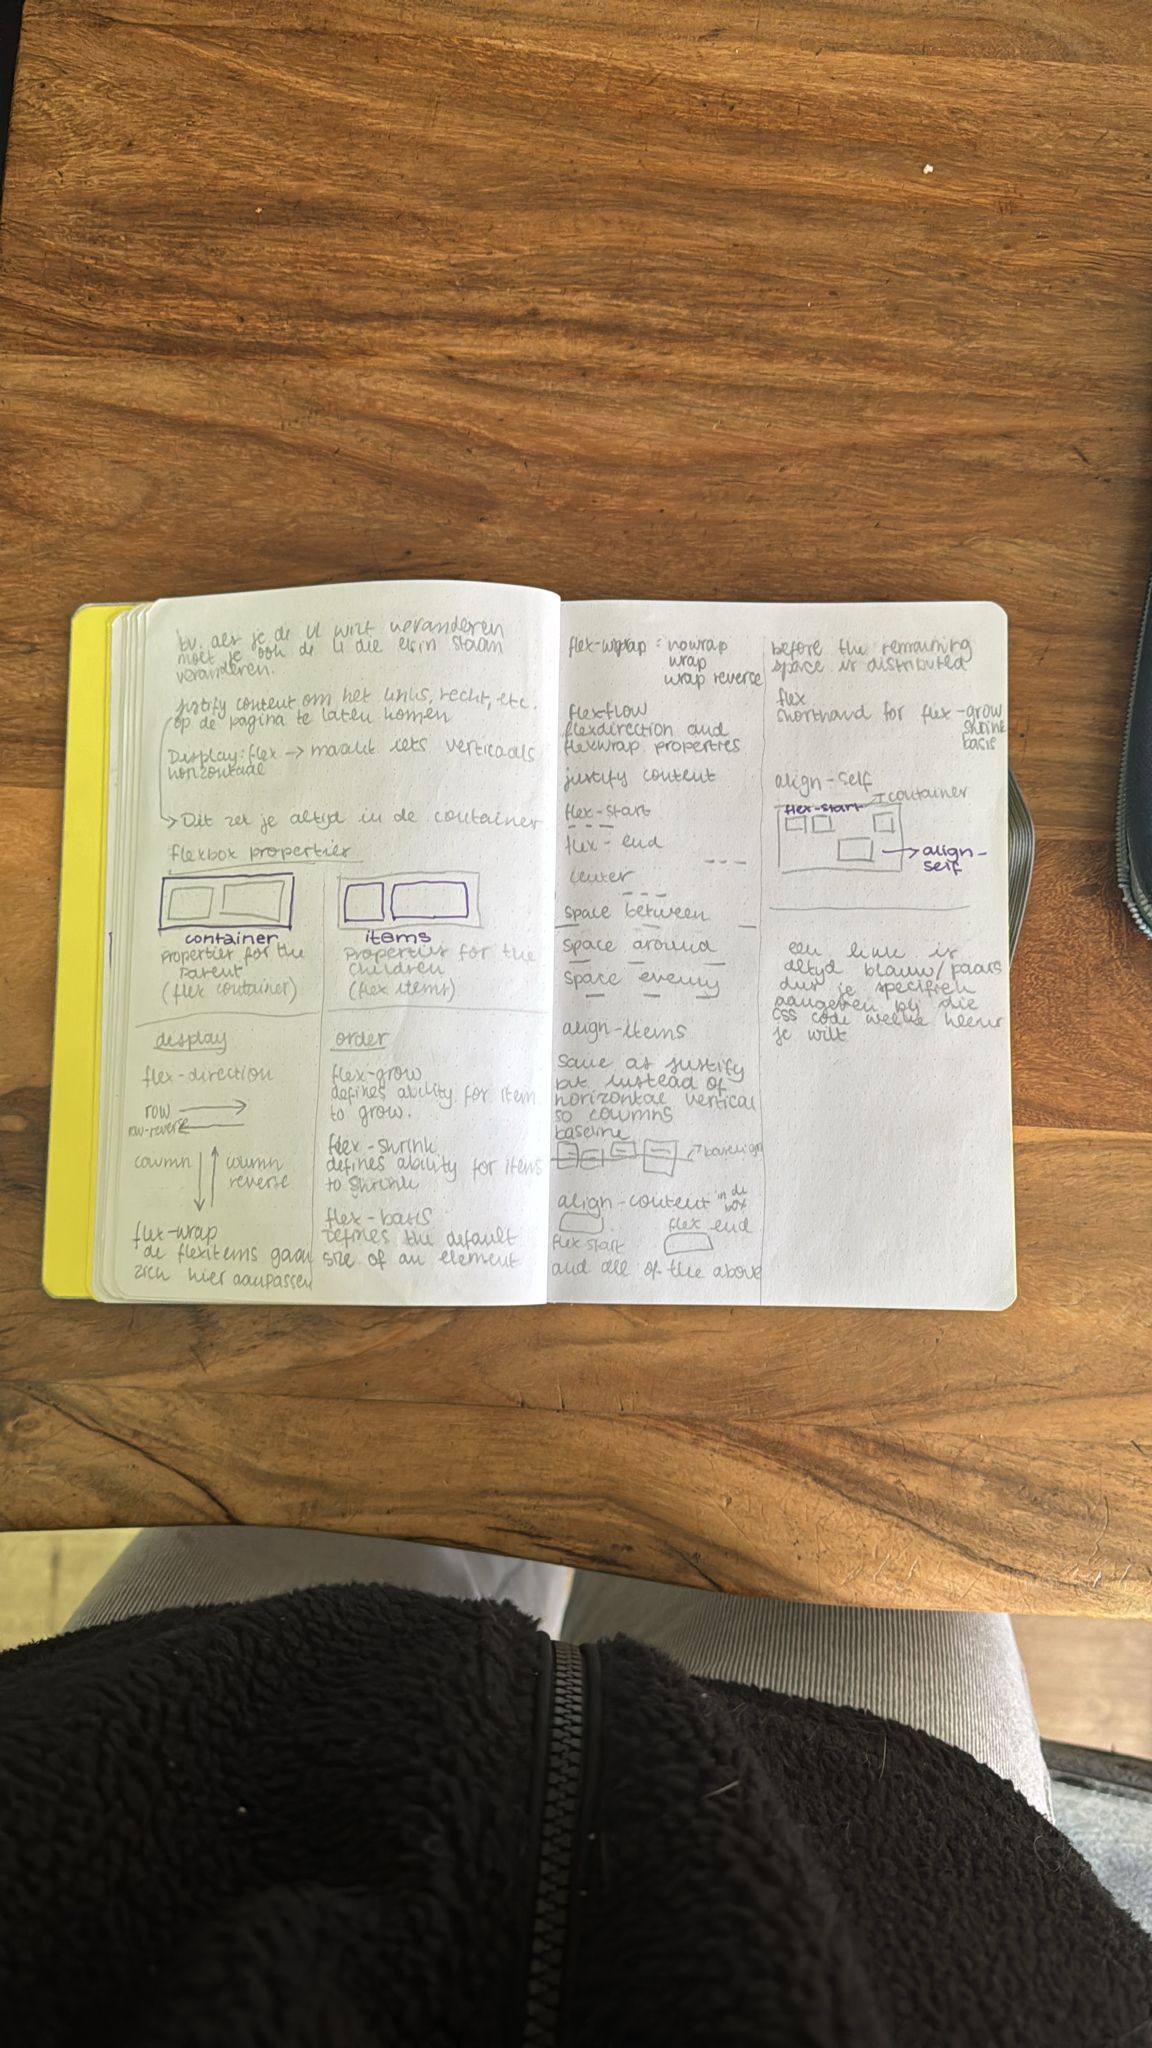 bv. als je de ul wilt veranderen
moet je ook de li die erin staan
veranderen.
justify content om het links, recht, etc.
op de pagina te laten komen
Display: flex → maakt iets verticaals
horizontaal
→ Dit zet je altijd in de container
flexbox properties
container
properties for the
parent
(flex container)
items
properties for the
children
(flex items)
display
flex-direction
row
row-reverse
column
column
reverse
flex-wrap
de flexitems gaan
zich hier aanpassen
order
flex-grow
defines ability for item
to grow.
flex-shrink
defines ability for items
to shrink
flex-basis
defines the default
size of an element
flex-wrap: nowrap
wrap
wrap reverse
flexflow
flexdirection and
flexwrap properties
justify content
flex-start
flex-end
center
space between
space around
space evenly
align-items
same as justify
but instead of
horizontal vertical
so columns
baseline
align-content in de
box
flex start
flex end
and all of the above
before the remaining
space is distributed
flex
shorthand for flex-grow
shrink
basis
align-self
flex-start
→ container
→ align-
self
een link is
altijd blauw/paars
dus je specifiek
aangeven bij die
CSS code welke kleur
je wilt